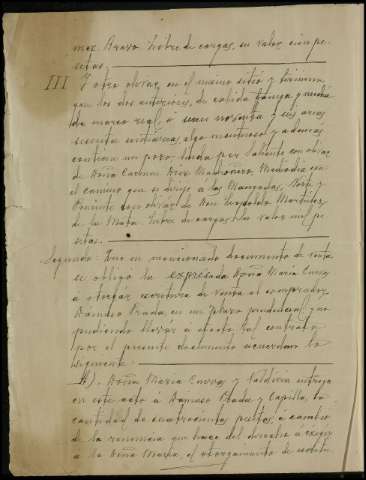 mez. Bravo. Libre de cargas, su valor cien pe-
setas.
III Y otro olivar, en el mismo sitio y término
que los dos anteriores, de cabida fanega y media
de marco real, ó sean noventa y seis areas
sesenta centiáreas, algo montuoso, y ademas
contiene un pozo, linda por Saliente con olivar
de Doña Carmen Mediodia con
el camino que se dirige á las Norte y
Poniente con olivar de Don Leopoldo Martinez
de la Mata. Libre de cargas, su valor mil pe-
setas.
Segundo. Que en mencionado documento de venta
se obligó la expresada Doña Maria Cuevas
á otorgar escritura de venta al comprador
Ramiro Prada, en un plazo prudencial, y no
pudiendo llevar á efecto tal contrato
por el presente documento acuerdan lo
siguiente.
A). Doña Maria Cuevas y Valdivia entrega
en este acto á Ramiro Prada y Capilla, la
cantidad de cuatrocientas pesetas, á cambio
de la renuncia que hace del derecho á exigir
á la Doña Maria, el otorgamiento de escritu-